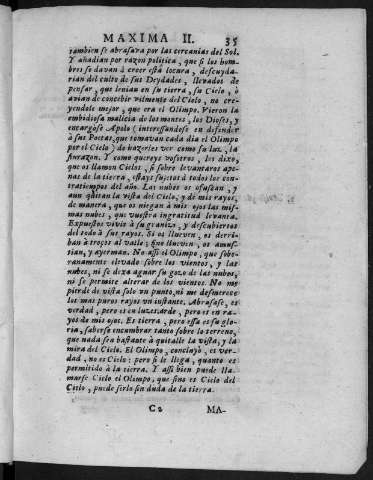 MAXIMA II. 35
tambien se abrasava por las cercanias del Sol.
Y añadian por razon politica, que si los hom-
bres se davan à creer està locura, descuyda-
rian del culto de sus Deydades, llevados de
pensar, que tenian en su tierra, su Cielo, ò
avian de concebir vilmente del Cielo, no cre-
yendole mejor, que era el Olimpo. Vieron la
embidiosa malicia de los montes, los Dioses, y
encargòse Apolo (interessandose en defender
à sus Poetas, que tomavan cada dia el Olimpo
por el Cielo) de hazerles ver como su luz, la
sinrazon. Y como quereys vosotros, les dixo,
que os llamen Cielos, si sobre levantaros ape-
nas de la tierra, estays sujetos à todos los con-
tratiempos del año. Las nubes os ofuscan, y
aun quitan la vista del Cielo, y de mis rayos,
de manera, que os niegan à mis ojos las mis-
mas nubes, que vuestra ingratitud levanta.
Expuestos vivis à su granizo, y descubiertos
del todo à sus rayos. Si os llueven, os derri-
ban à troços al valle; sino llueven, os amus-
tian, y ayerman. No assi el Olimpo, que sobe-
ranamente elevado sobre los vientos, y las
nubes, ni se dexa aguar su gozo de las nubes,
ni se permite alterar de los vientos. No me
pierde de vista solo un punto, ni me desmerece
los mas puros rayos un instante. Abrasase, es
verdad, pero es en luzes arde, pero es en ra-
yos de mis ojos. Es tierra, pero essa es su glo-
ria, saberse encumbrar tanto sobre lo terreno,
que nada sea bastante à quitalle la vista, y la
mira del Cielo. El Olimpo, concluyò, es ver-
dad, no es Cielo; pero si le llega, quanto es
permitido à la tierra. Y assi bien puede lla-
marse Cielo el Olimpo, que sino es Cielo del
Cielo, puede serlo sin duda de la tierra.
C2 MA-